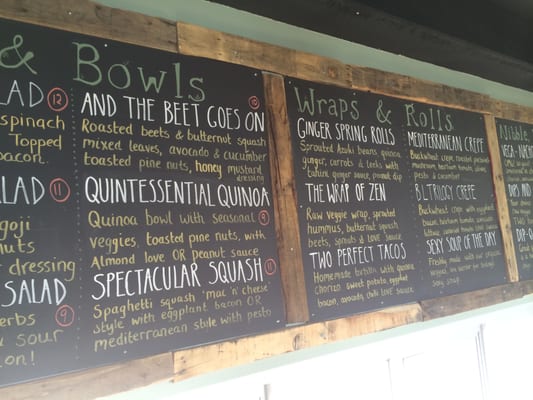 & Bowls
LAD 12
spinach
Topped
bacon.
LAD 11
goji
nuts
dressing
SALAD 9
erbs
& sour
on!
AND THE BEET GOES ON 10
Roasted beets & butternut squash
mixed leaves, avocado & cucumber
toasted pine nuts, honey mustard
dressing
QUINTESSENTIAL QUINOA
Quinoa bowl with seasonal 9
veggies, toasted pine nuts, with
Almond love OR peanut sauce
SPECTACULAR SQUASH 11
Spaghetti squash 'mac 'n' cheese'
style with eggplant bacon OR
mediterranean style with pesto
Wraps & Rolls
GINGER SPRING ROLLS
Sprouted Azuki beans, quinoa,
ginger, carrots & leeks with
tahini ginger sauce, peanut dip
THE WRAP OF ZEN
Raw veggie wrap, sprouted
hummus, butternut squash
beets, sprouts & love sauce
TWO PERFECT TACOS
Homemade tortilla with quinoa
chorizo, sweet potato, eggplant
bacon, avocado, chilli love sauce
MEDITERRANEAN CREPE
Buckwheat crepe, roasted
mushroom, heirloom tomato,
pesto & cucumber
B.L.TRILOGY CREPE
Buckwheat crepe with eggplant
bacon, heirloom tomato,
SEXY SOUP OF THE DAY
Nibble
DIPS AND
DIP-